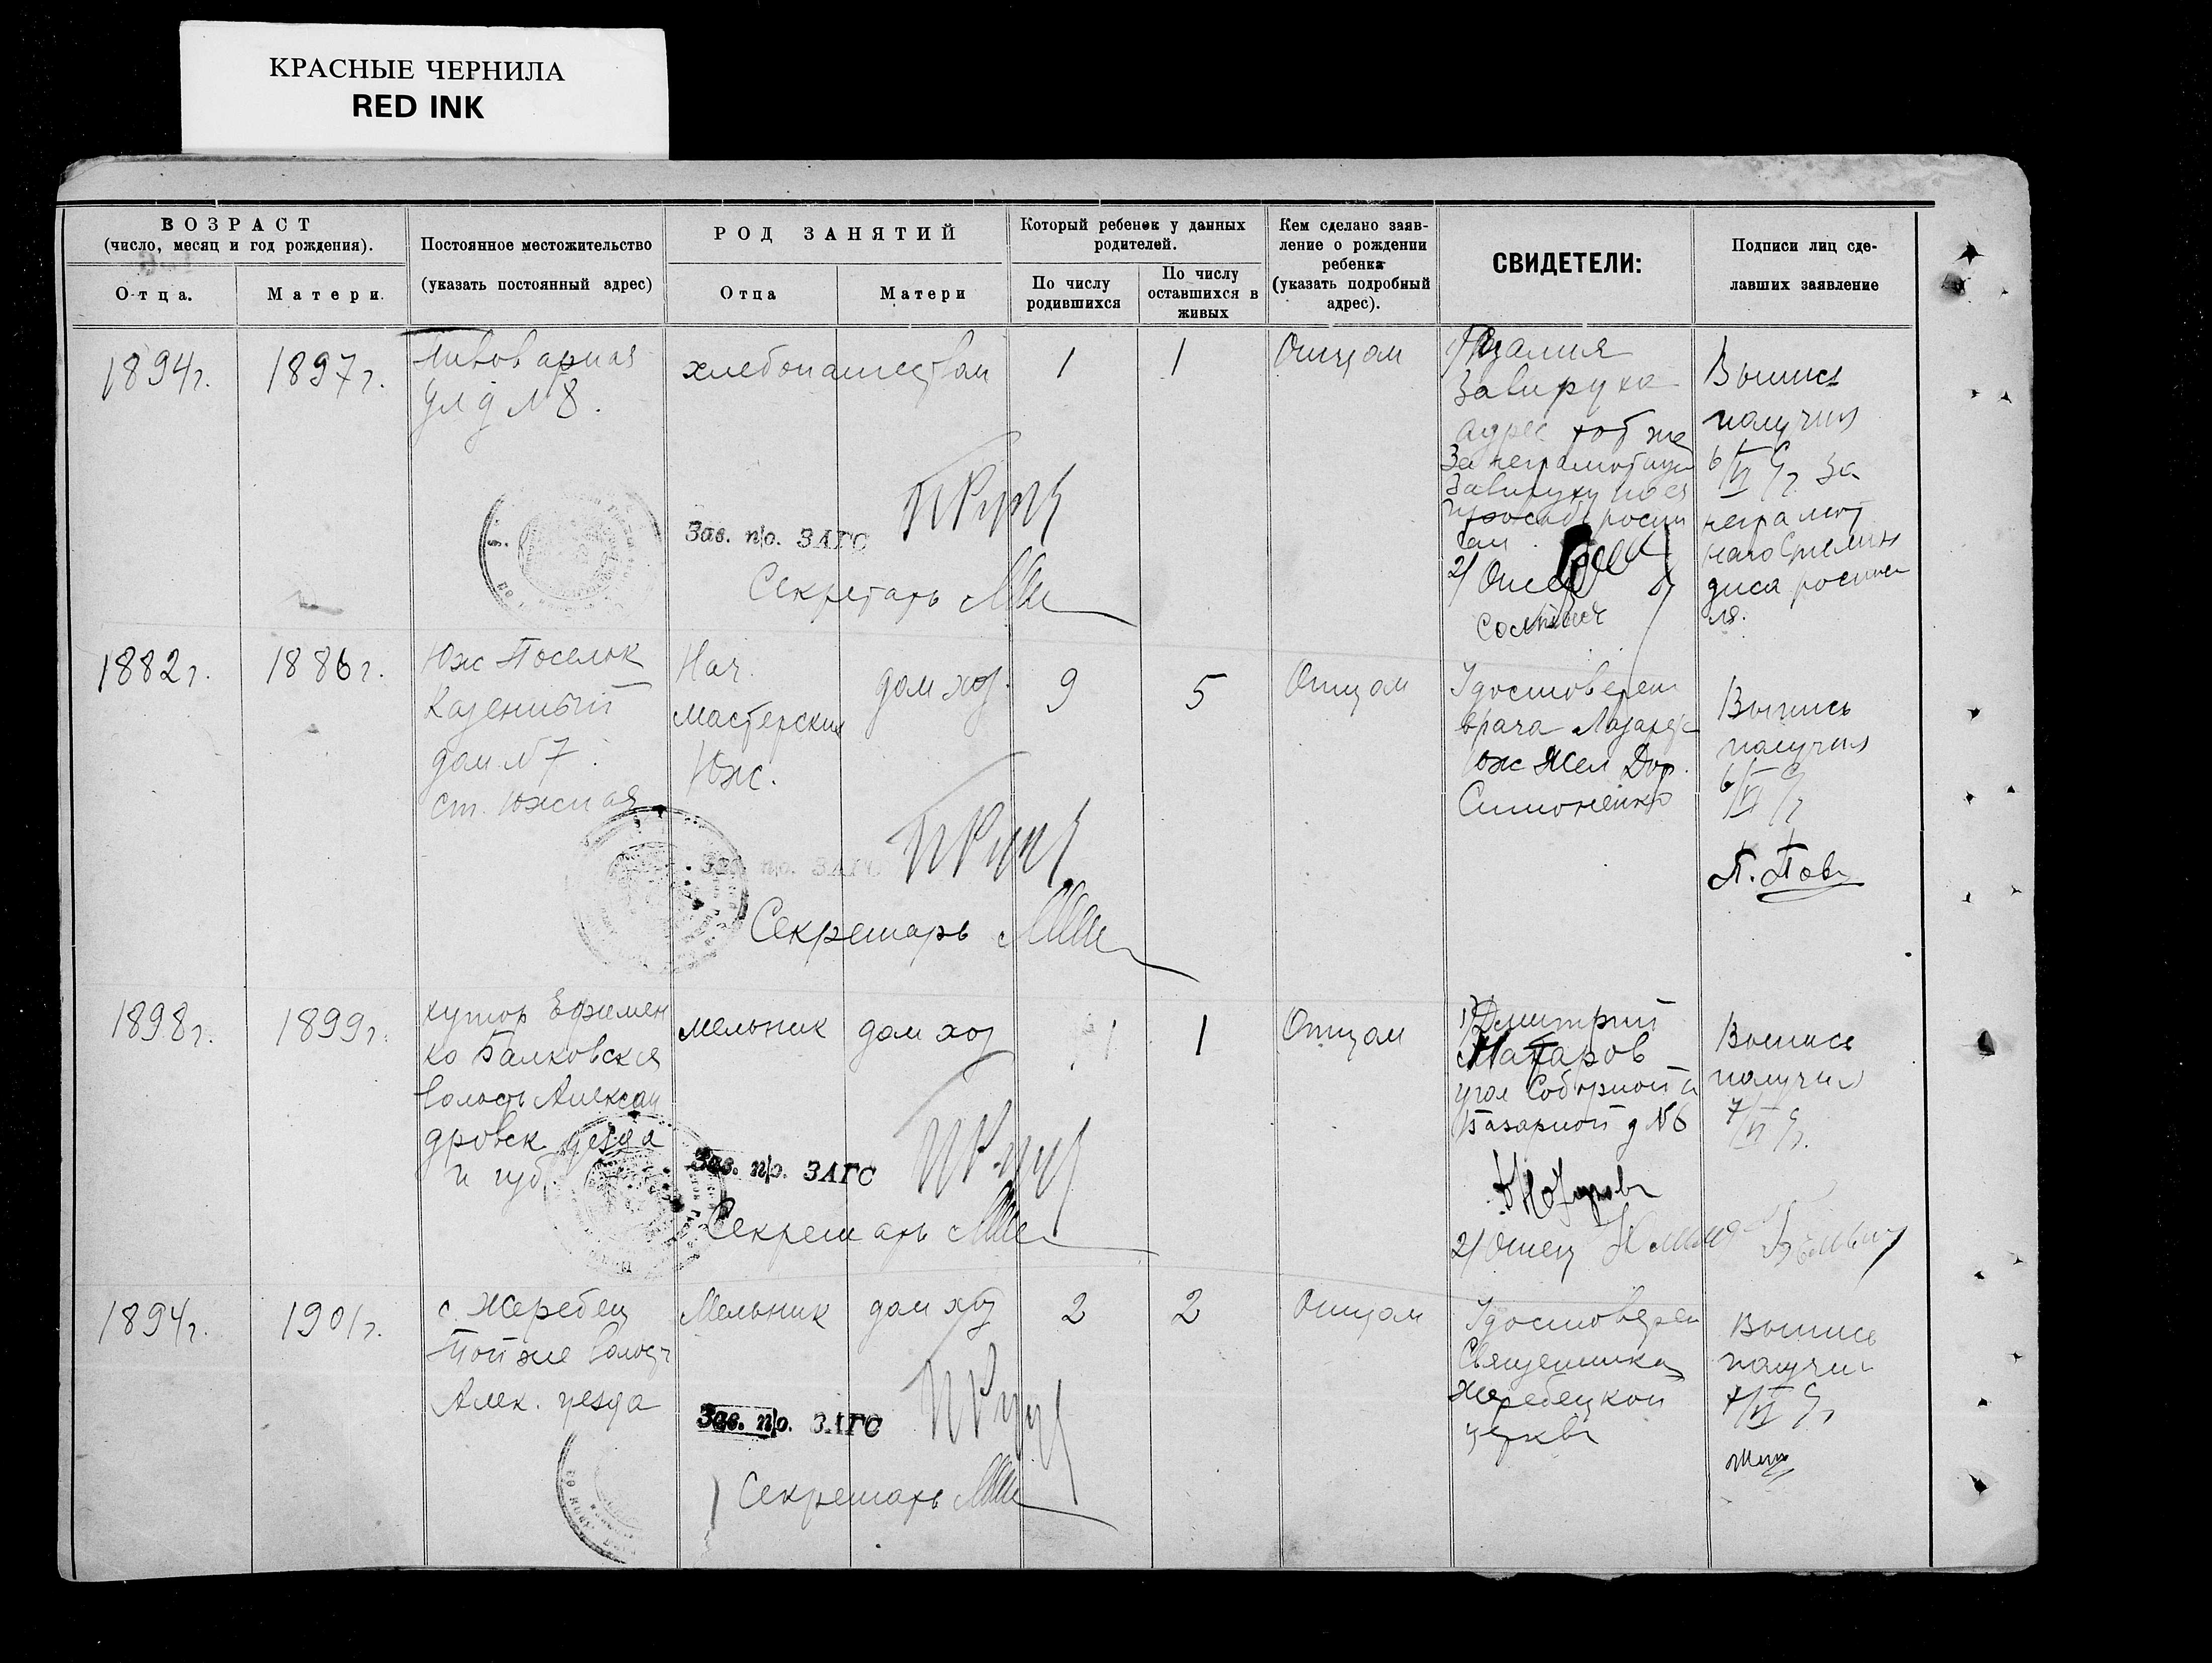 КРАСНЫЕ ЧЕРНИЛА
RED INK
ВОЗРАСТ
(число, месяц и год рождения).
Отца.
Матери.
Постоянное местожительство
(указать постоянный адрес)
РОД ЗАНЯТИЙ
Отца
Матери
Который ребенок у данных
родителей.
По числу
родившихся
По числу
оставшихся в
живых
Кем сделано заяв-
ление о рождении
ребенка
(указать подробный
адрес).
СВИДЕТЕЛИ:
Подписи лиц сде-
лавших заявление
1894г.
1897г.
Пивоварная
ул д №8.
хлебопашеством
1
1
Отцом
Завируха
адрес тот же
За неграмотную
Завируху по ея
2/ Отец
Выпись
получил
6/VI За
неграмот
наго
Зав. п/о. ЗАГС
Секретарь
1882г.
1886г.
Юж Поселок
Казенный
дом №7.
ст. Южная
Нач.
мастерских
Юж.
дом хоз.
9
5
Отцом
Удостоверен
врача Лазарет
Юж Жел Дор.
Симоненко
Выпись
получил
6/VI
Зав. п/о. ЗАГС
Секретарь
1898г.
1899г.
хутор Ефимен
ко Балковския
волость Алексан
дровск уезда
и губ.
мельник
дом хоз
1
1
Отцом
1) Дмитрий
угол Соборной и
Базарной д №6
2/ Отец
Выпись
получил
7/VI
Зав. п/о. ЗАГС
Секретарь
1894г.
1901г.
с Жеребец
Той же волост
Алек. уезда
Мельник
дом хоз
2
2
Отцом
Удостоверен
Священника
Жеребецкой
церкви
Выпись
получил
7/VI
Зав. п/о. ЗАГС
Секретарь